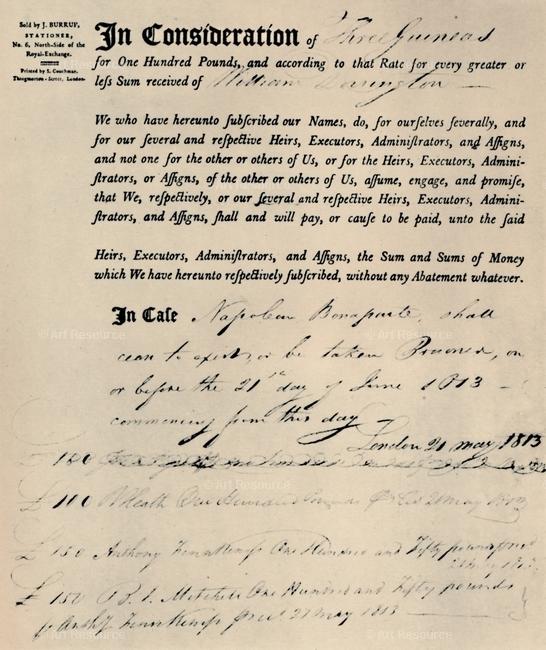 Sold by J. BURRUP,
STATIONER,
No. 6, North-Side of the
Royal-Exchange.
Printed by S. Couchman,
Throgmorton-Street, London
In Consideration of Three Guineas
for One Hundred Pounds, and according to that Rate for every greater or
leſs Sum received of William Dorington
We who have hereunto ſubſcribed our Names, do, for ourſelves ſeverally, and
for our ſeveral and reſpective Heirs, Executors, Adminiſtrators, and Aſſigns,
and not one for the other or others of Us, or for the Heirs, Executors, Admini-
ſtrators, or Aſſigns, of the other or others of Us, aſſume, engage, and promiſe,
that We, reſpectively, or our ſeveral and reſpective Heirs, Executors, Admini-
ſtrators, and Aſſigns, ſhall and will pay, or cauſe to be paid, unto the ſaid
Heirs, Executors, Adminiſtrators, and Aſſigns, the Sum and Sums of Money
which We have hereunto reſpectively ſubſcribed, without any Abatement whatever.
In Caſe Napoleon Bonaparte shall
cease to exist, or be taken Prisoner, on
or before the 21st day of June 1813
commencing from this day
London 21 May 1813
£ 100
£ 100 Heath One Hundred Pounds 21 May 1813
£ 150 Anthony One Hundred and Fifty pounds
21 May 1813
£ 150 Mitchell One Hundred and Fifty pounds
21 May 1813
© Art Resource
© Art Resource
© Art Resource
© Art Resource
© Art Resource
© Art Resource